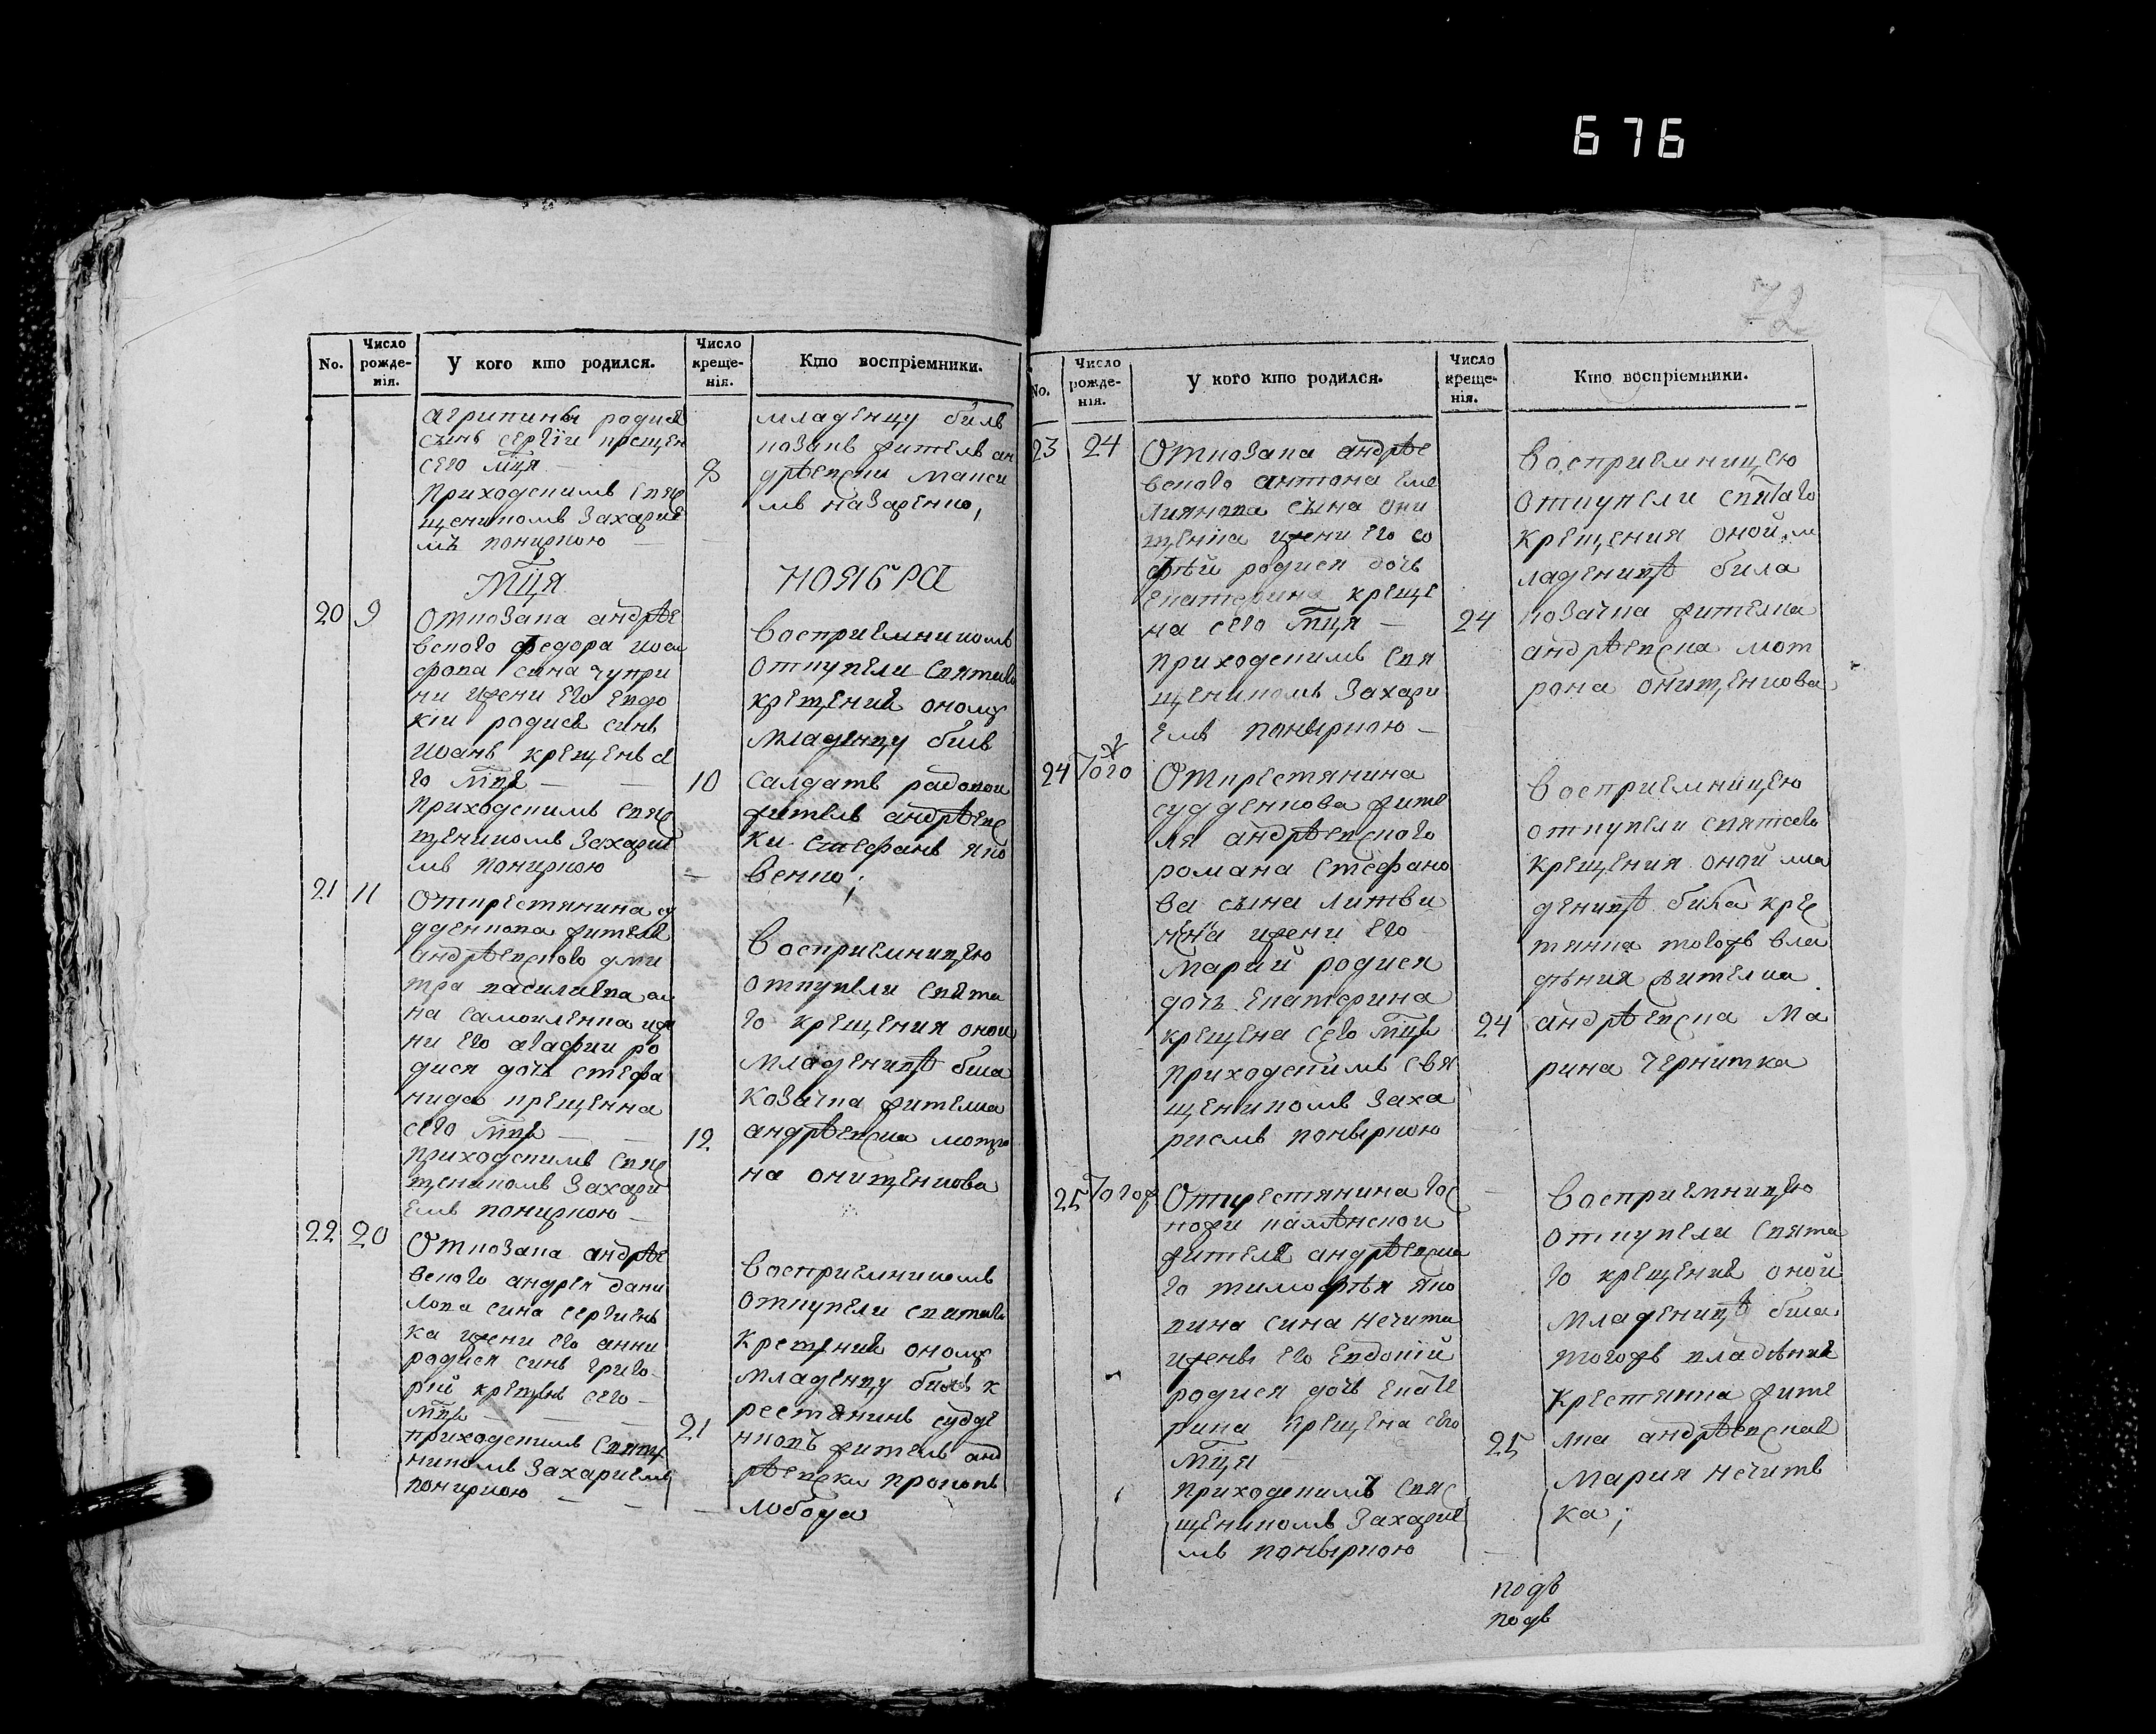 676
72
No.
Число рожде-нія.
У кого кто родился.
Число креще-нія.
Кто воспріемники.
агрипины родися
сынъ сергїи крещен
сего мця
8
приходскимъ свящ
щенникомъ Захарие
мъ пониркою
младенцу билъ
козакъ жителъ ан
дрѣевски макси
мъ назаренко,
мця
НОЯБРА
20
9
От козака андрѣе
вского федора иоси
фова сина чупри
ни жени его евдо
кіи родися синъ
иоанъ крещенъ се
го мця
10
приходскимъ свящ
щеникомъ Захарие
мъ пониркою
восприемникомъ
от купели святаго
крещения оному
младенцу билъ
салдатъ радовои
жителъ андрѣевс
ки стефанъ яко
венко;
21
11
От крестянина су
дденкова жителя
андрѣевского дми
тра василиева си
на самоиленка же
ни его агафии ро
дися дочъ стефа
нида крещенна
сего мця
12
приходскимъ свящ
щеникомъ Захари
емъ пониркою
восприемницею
от купели свята
го крещения оной
младеницѣ била
козачка жителка
андрѣевска мотро
на онищенкова
22
20
От козака андрѣе
вского андрея дани
лова сина сергиенъ
ка жени его анни
родися синъ григо
рий крещенъ сего
мця
21
приходскимъ свящ
никомъ Захариемъ
пониркою
восприемникомъ
от купели святаго
крещения оному
младенцу билъ к
рестянинъ судде
нковъ жителъ анд
рѣевски прокопъ
лобода
No.
Число рожде-нія.
У кого кто родился.
Число креще-нія.
Кто воспріемники.
23
24
От козака андрѣе
вского антона еме
лиянова сына они
щенка жени его со
фѣй родися дочъ
екатерина креще
на сего мця
24
приходскимъ свя
щеникомъ Захари
емъ поныркою
восприемницею
от купели святаго
крещения оной м
ладеницѣ била
козачка жителка
андрѣевска мот
рона онищенкова
24
Того ж
От крестянина
судденкова жите
ля андрѣевского
романа стефано
ва сына литви
нена жени его
марий родися
дочъ екатерина
крещена сего мця
24
приходскимъ свя
щеникомъ Заха
риемъ поныркою
восприемницею
от купели святого
крещения оной мла
деницѣ била крес
тянка тогожъ вла
дѣния жителка
андрѣевска ма
рина чернитка
25
Тогож
От крестянина гос
пожи каменской
жителя андрѣевско
го тимофѣя яко
вина сина нечита
жены его евдокий
родися дочъ екате
рина крещена сего
мця
25
приходскимъ свящ
щеникомъ Захарие
мъ поныркою
восприемницею
от купели свята
го крещения оной
младеницѣ била
тогожъ владѣния
крестянка жите
лка андрѣевская
мария нечитъ
ка;
подъ
подъ